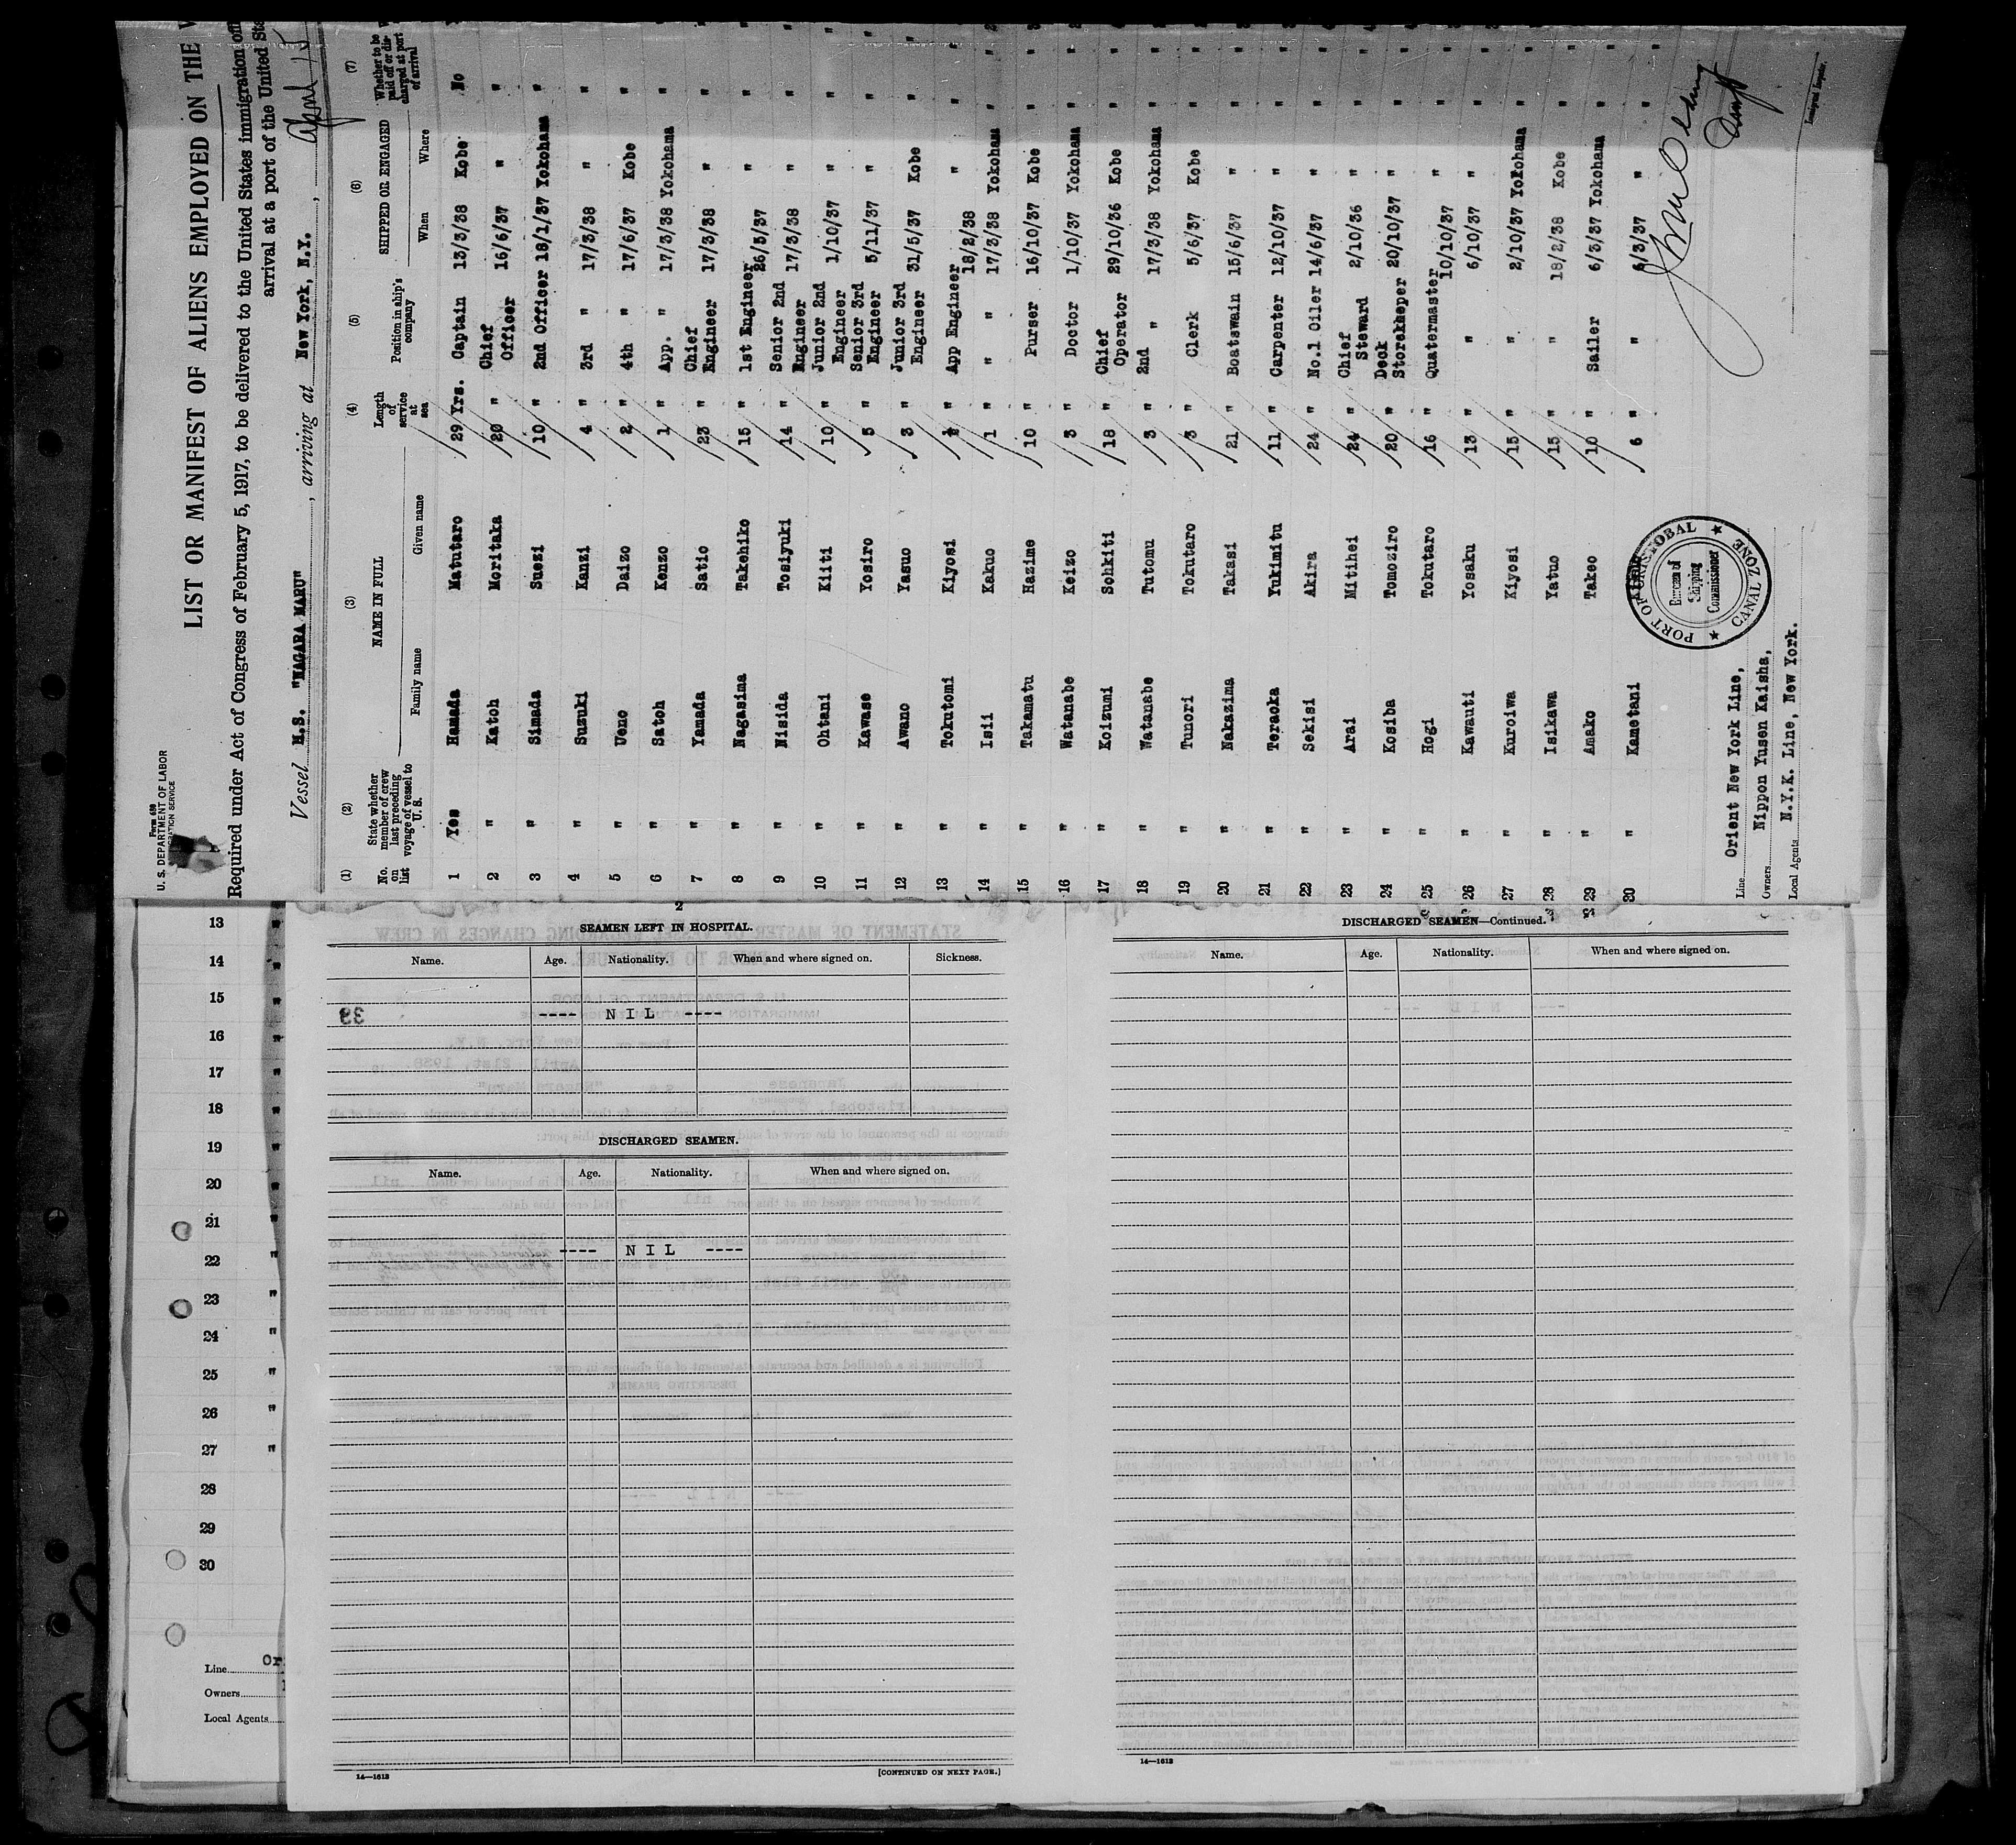 Form 680
U. S. DEPARTMENT OF LABOR
IMMIGRATION SERVICE
LIST OR MANIFEST OF ALIENS EMPLOYED ON THE
Required under Act of Congress of February 5, 1917, to be delivered to the United States immigration
arrival at a port of the United
Vessel M.S. "NAGARA MARU", arriving at New York, N.Y., April 15
(1) (2) (3) (4) (5) (6) (7)
No. on list State whether member of crew last preceding voyage of vessel to U. S. NAME IN FULL Length of service at sea Position in ship's company SHIPPED OR ENGAGED Whether to be paid off or discharged at port of arrival
Family name Given name When Where
1 Yes Hamada Matutaro 29 Yrs. Captain 13/3/38 Kobe No
2 " Katoh Moritaka 20 " Chief Officer 16/6/37 " "
3 " Simada Suezi 10 " 2nd Officer 18/1/37 Yokohama "
4 " Suzuki Kanzi 4 " 3rd " 17/3/38 " "
5 " Ueno Daizo 2 " 4th " 17/6/37 Kobe "
6 " Satoh Kenzo 1 " App. " 17/3/38 Yokohama "
7 " Yamada Satio 23 " Chief Engineer 17/3/38 " "
8 " Nagasima Takehiko 15 " 1st Engineer 26/5/37 " "
9 " Nisida Tosiyuki 14 " Senior 2nd Engineer 17/3/38 " "
10 " Ohtani Kiiti 10 " Junior 2nd Engineer 1/10/37 " "
11 " Kawase Yosiro 5 " Senior 3rd Engineer 5/11/37 " "
12 " Awano Yasuo 3 " Junior 3rd Engineer 31/5/37 Kobe "
13 " Tokutomi Kiyosi 1 " App Engineer 18/2/38 " "
14 " Isii Kakuo 1 " " " 17/3/38 Yokohama "
15 " Takamatu Hazime 10 " Purser 16/10/37 Kobe "
16 " Watanabe Keizo 3 " Doctor 1/10/37 Yokohama "
17 " Koizumi Sohkiti 18 " Chief Operator 29/10/36 Kobe "
18 " Watanabe Tutomu 3 " 2nd " 17/3/38 Yokohama "
19 " Tunori Tokutaro 3 " Clerk 5/6/37 Kobe "
20 " Nakazima Takasi 21 " Boatswain 15/6/37 " "
21 " Teraoka Yukimitu 11 " Carpenter 12/10/37 " "
22 " Sekisi Akira 24 " No.1 Oiler 14/6/37 " "
23 " Arai Mitihei 24 " Chief Steward 2/10/36 " "
24 " Kosiba Tomoziro 20 " Deck Storekheper 20/10/37 " "
25 " Hogi Tokutaro 16 " Quatermaster 10/10/37 " "
26 " Kawauti Yosaku 13 " " 6/10/37 " "
27 " Kuroiwa Kiyosi 15 " " 2/10/37 Yokohama "
28 " Isikawa Yatuo 15 " " 18/2/38 Kobe "
29 " Amako Takeo 10 " Sailer 6/3/37 Yokohama "
30 " Kametani 6 " " 6/3/37 " "
Line Orient New York Line,
Owners Nippon Yusen Kaisha,
Local Agents N.Y.K. Line, New York.
PORT OF CRISTOBAL
Bureau of Shipping Commissioner
CANAL ZONE
Immigrant Inspector.
13 "
14 "
15 "
16 "
17 "
18 "
19 "
20 "
21 "
22 "
23 "
24 "
25 "
26 "
27 "
28
29
30
Line Or
Owners
Local Agents
2
SEAMEN LEFT IN HOSPITAL.
Name. Age. Nationality. When and where signed on. Sickness.
---- NIL ----
DISCHARGED SEAMEN.
Name. Age. Nationality. When and where signed on.
---- NIL ----
14—1613
[CONTINUED ON NEXT PAGE.]
DISCHARGED SEAMEN—Continued.
Name. Age. Nationality. When and where signed on.
14—1613